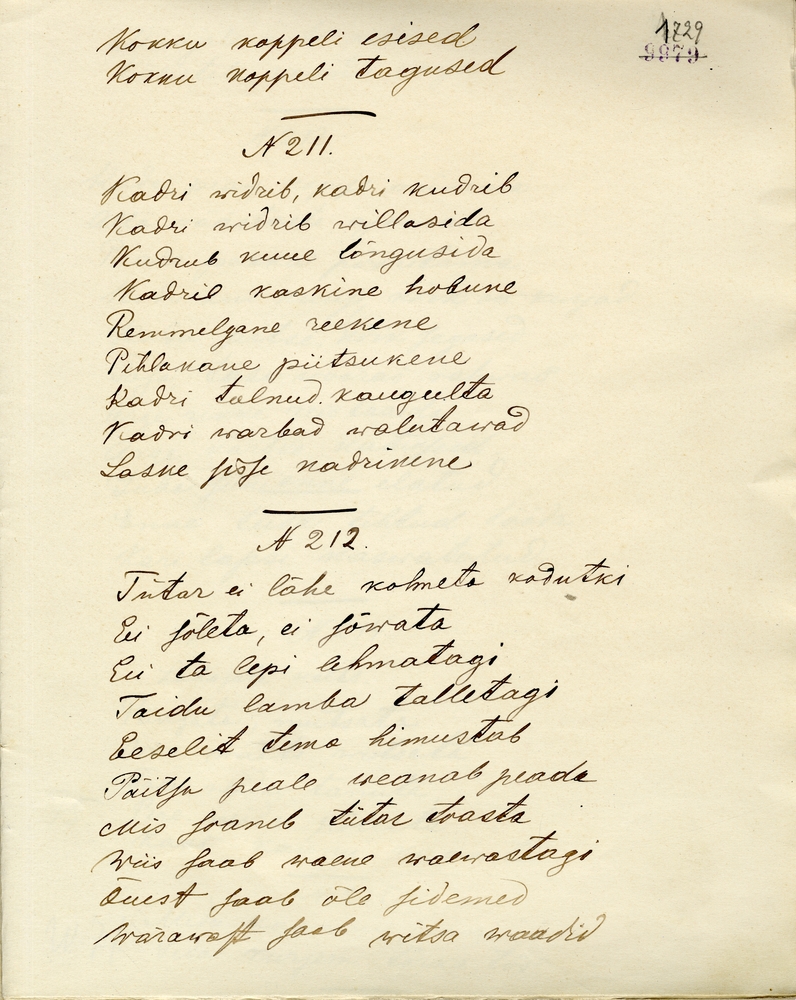 1729
9979
Kokku koppeli esised
Kokku koppeli tagused
N 211.
Kadri widrib, kadri kudrib
Kadri widrib willasida
Kudrub kuue lõngusida
Kadril kaskine hobune
Remmelgane reekene
Pihlakane piitsukene
Kadri tulnud kaugelta
Kadri warbad walutawad
Laske sisse kadrikene
N 212.
Tütar ei lähe kolmeta kodutki
Ei sõleta, ei sõwata
Ei ta lepi lehmatagi
Taidu lamba talletagi
Eeselit tema himustab
Päitsu peale weanab peada
Mis soaneb tütar toasta
Wiis saab waene waewastagi
Õuest saab õle sidemed
Wärawast saab witsa waadid